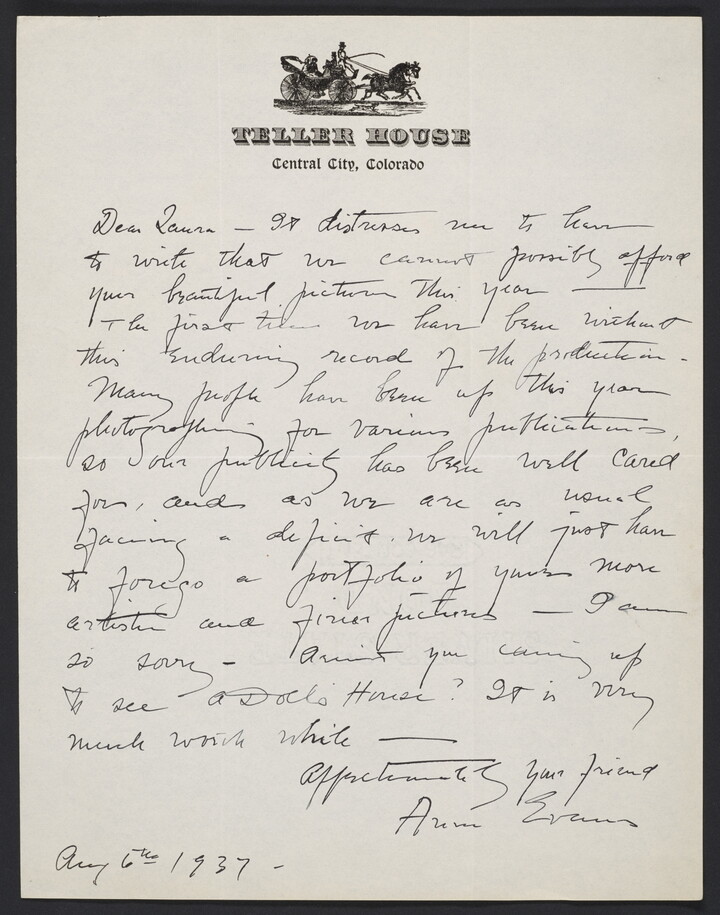 TELLER HOUSE
Central City, Colorado
Dear Laura — It distresses me to have
to write that we cannot possibly afford
your beautiful pictures this year —
The first time we have been without
this enduring record of the production –
Many people have been up this year
photographing for various publications,
so our publicity has been well cared
for, and as we are as usual
facing a deficit, we will just have
to forego a portfolio of your more
artistic and finer pictures — I am
so sorry – Aren't you coming up
to see a Doll's House? It is very
much worth while —
Affectionately your friend
Anne Evans
Aug 6th 1937 –